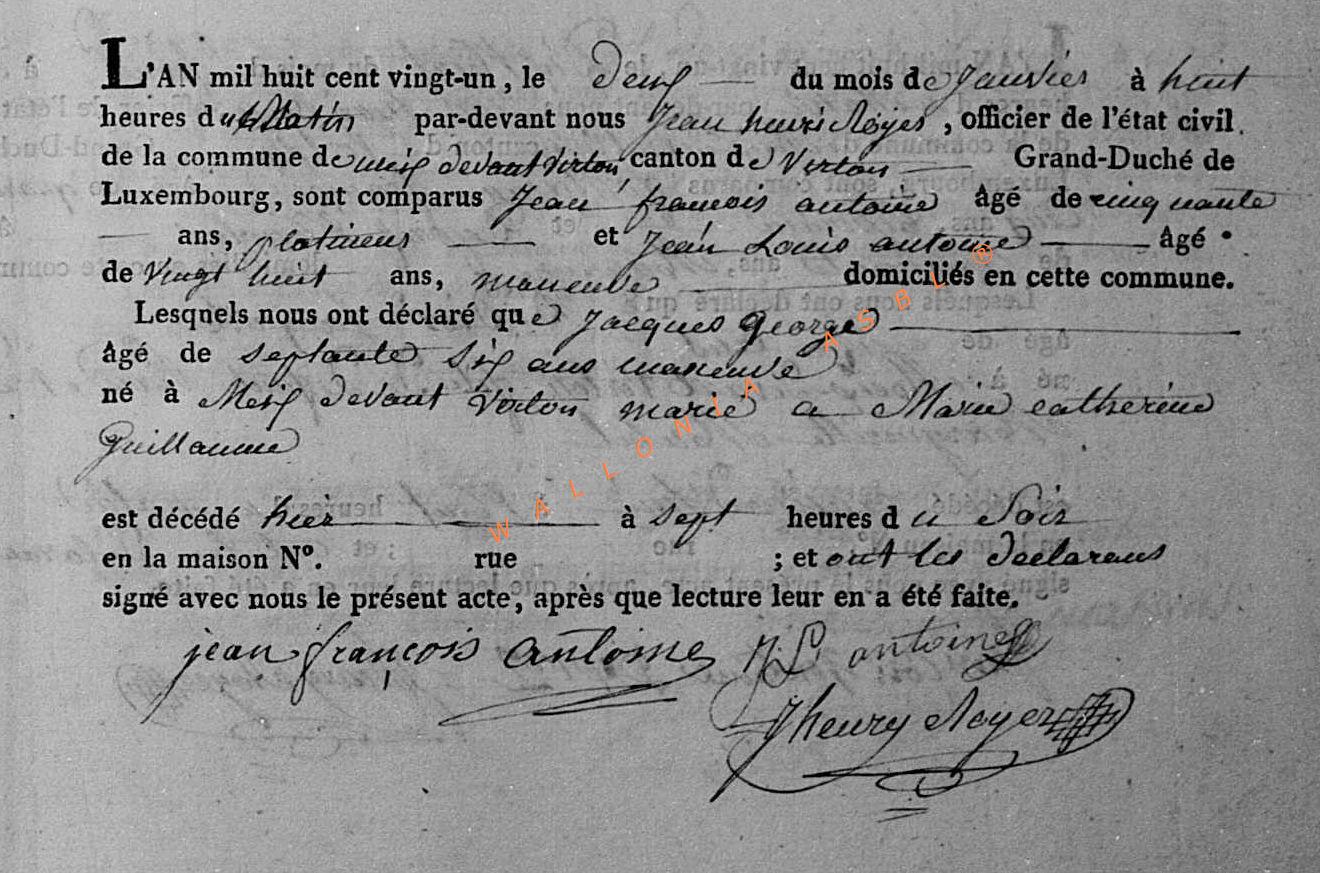 L'AN mil huit cent vingt-un, le deux du mois de Janvier à huit
heures du Matin par-devant nous Jean henri Royer, officier de l'état civil
de la commune de meix devant virton, canton de Virton Grand-Duché de
Luxembourg, sont comparus Jean françois antoine âgé de cinquante
ans, platineur et Jean Louis antoine âgé
de vingt huit ans, maneuve domiciliés en cette commune.
Lesquels nous ont déclaré que Jacques George
âgé de septante six ans maneuve
né à Meix devant Virton marié a Marie catherine
Guillaume
est décédé hier à sept heures du Soir
en la maison N°. rue ; et ont les declarans
signé avec nous le présent acte, après que lecture leur en a été faite.
jean françois antoine JL antoine
Jhenry Royer
WALLONIA ASBL ®